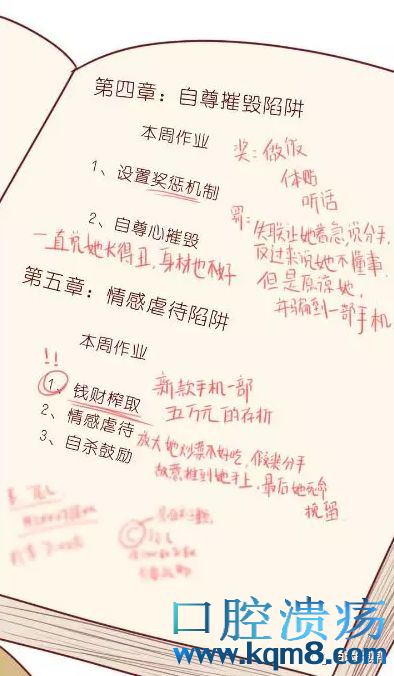 第四章：自尊摧毁陷阱
本周作业
1、设置奖惩机制
奖：做饭
体贴
听话
2、自尊心摧毁
一直说她长得丑，身材也不好
罚：失联让她着急，说分手，
反过来说她不懂事
但是原谅她，
并骗到一部手机
第五章：情感虐待陷阱
本周作业
!!
1、钱财榨取
新款手机一部
五万元的存折
2、情感虐待
3、自杀鼓励
放大她炒菜不好吃，假装分手
故意推到她手上，最后她
挽留
口腔溃疡
www.kqm8.com